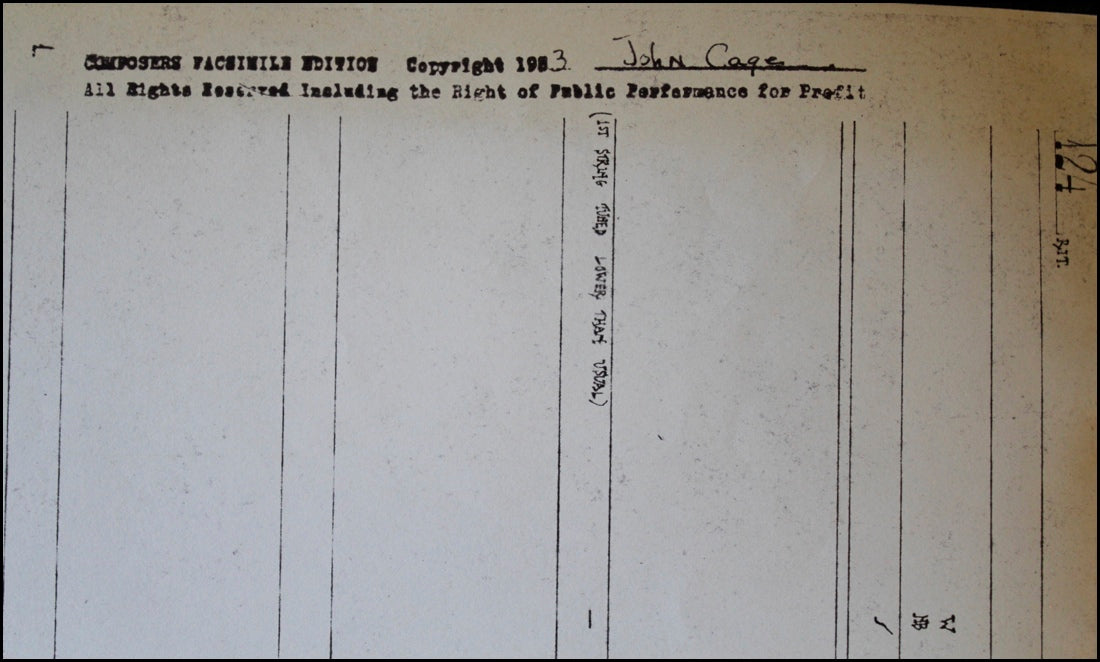 COMPOSERS FACSIMILE EDITION Copyright 1953 John Cage
All Rights Reserved Including the Right of Public Performance for Profit
124
(1ST STRING TUNED LOWER THAN USUAL)
W